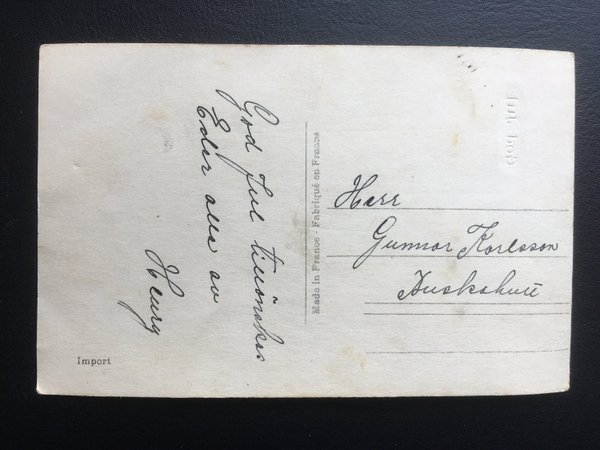 God Jul tillönskas
Eder alla av
Henry
Made in France - Fabriqué en France
Herr
Gunnar Karlsson
Import
God Jul